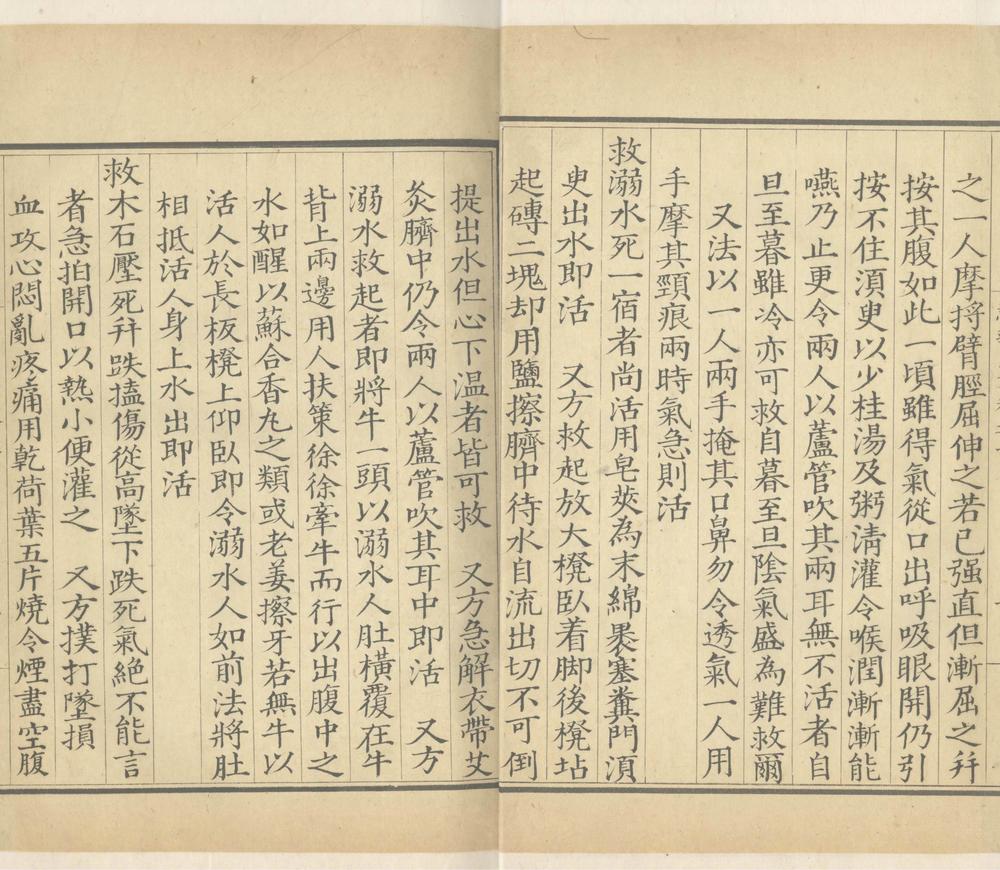 之一人摩捋臂脛屈伸之若已强直但漸屈之幷
按其腹如此一頃雖得氣從口出呼吸眼開仍引
按不住湏臾以少桂湯及粥淸灌令喉潤漸漸能
嚥乃止更令兩人以蘆管吹其兩耳無不活者自
旦至暮雖冷亦可救自暮至旦隂氣盛為難救爾
又法以一人兩手掩其口鼻勿令透氣一人用
手摩其頸痕兩時氣急則活
救溺水死一宿者尚活用皂莢為末綿褁塞糞門湏
臾出水即活　又方救起放大櫈臥着脚後櫈坫
起磚二塊却用鹽擦臍中待水自流出切不可倒
提出水但心下温者皆可救　又方急解衣帶艾
灸臍中仍令兩人以蘆管吹其耳中即活　又方
溺水救起者即將牛一頭以溺水人肚橫覆在牛
背上兩邊用人扶策徐徐牽牛而行以出腹中之
水如醒以蘇合香丸之類或老姜擦牙若無牛以
活人於長板櫈上仰臥即令溺水人如前法將肚
相抵活人身上水出即活
救木石壓死幷跌搕傷從高墜下跌死氣絕不能言
者急拍開口以熱小便灌之　又方撲打墜損
血攻心悶亂疼痛用乾荷葉五片燒令煙盡空腹